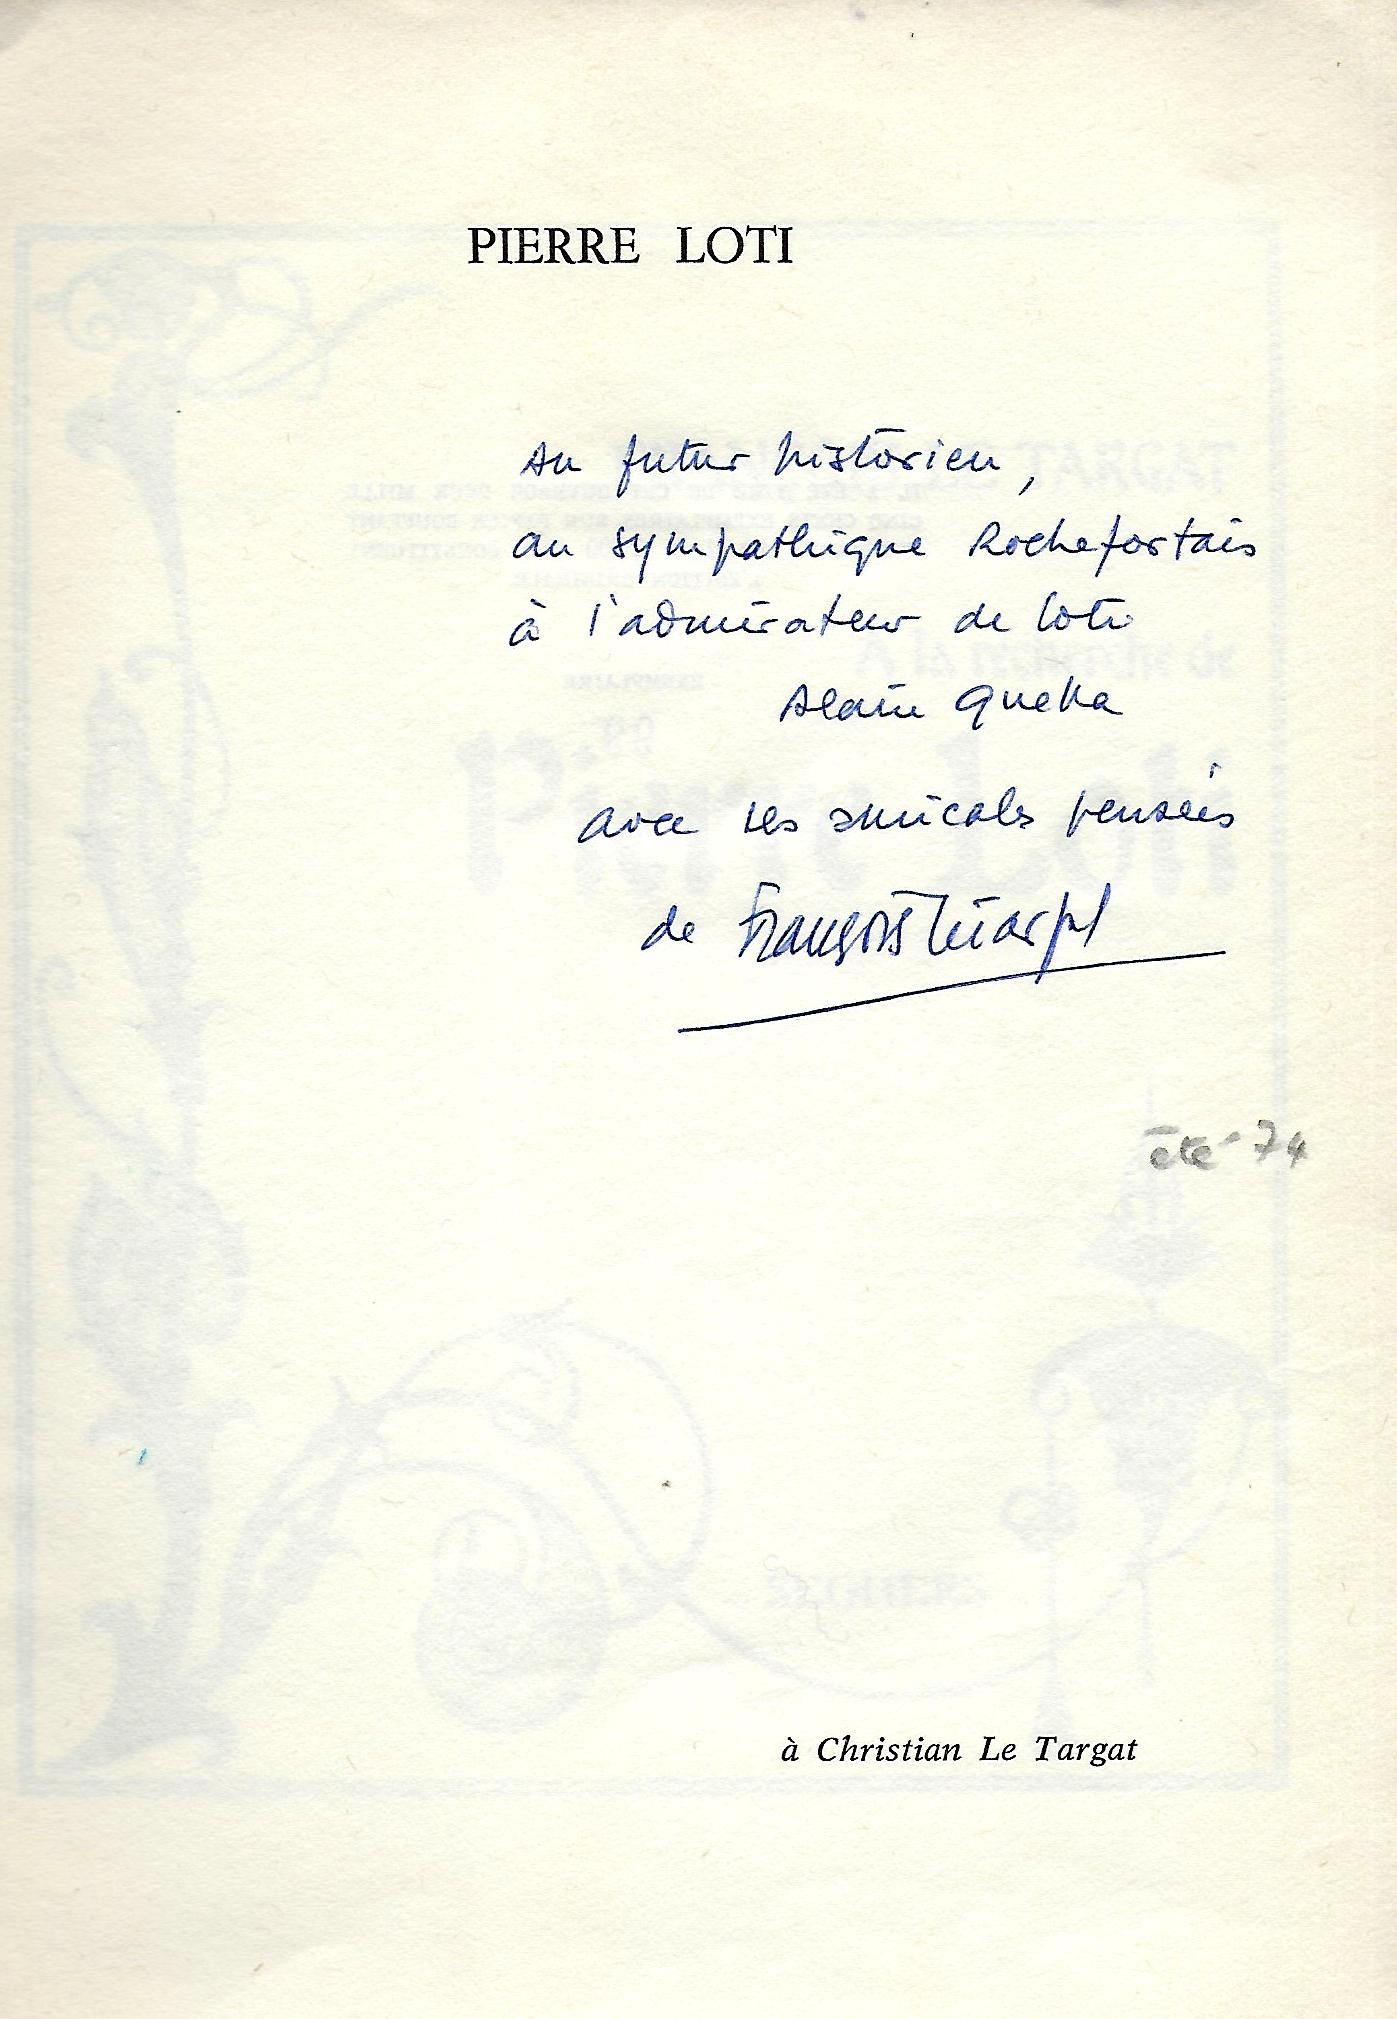 PIERRE LOTI
Au futur historien,
au sympathique Rochefortais
à l'admirateur de Loti
Alain Quella
avec les amicales pensées
de François
été 74
à Christian Le Targat